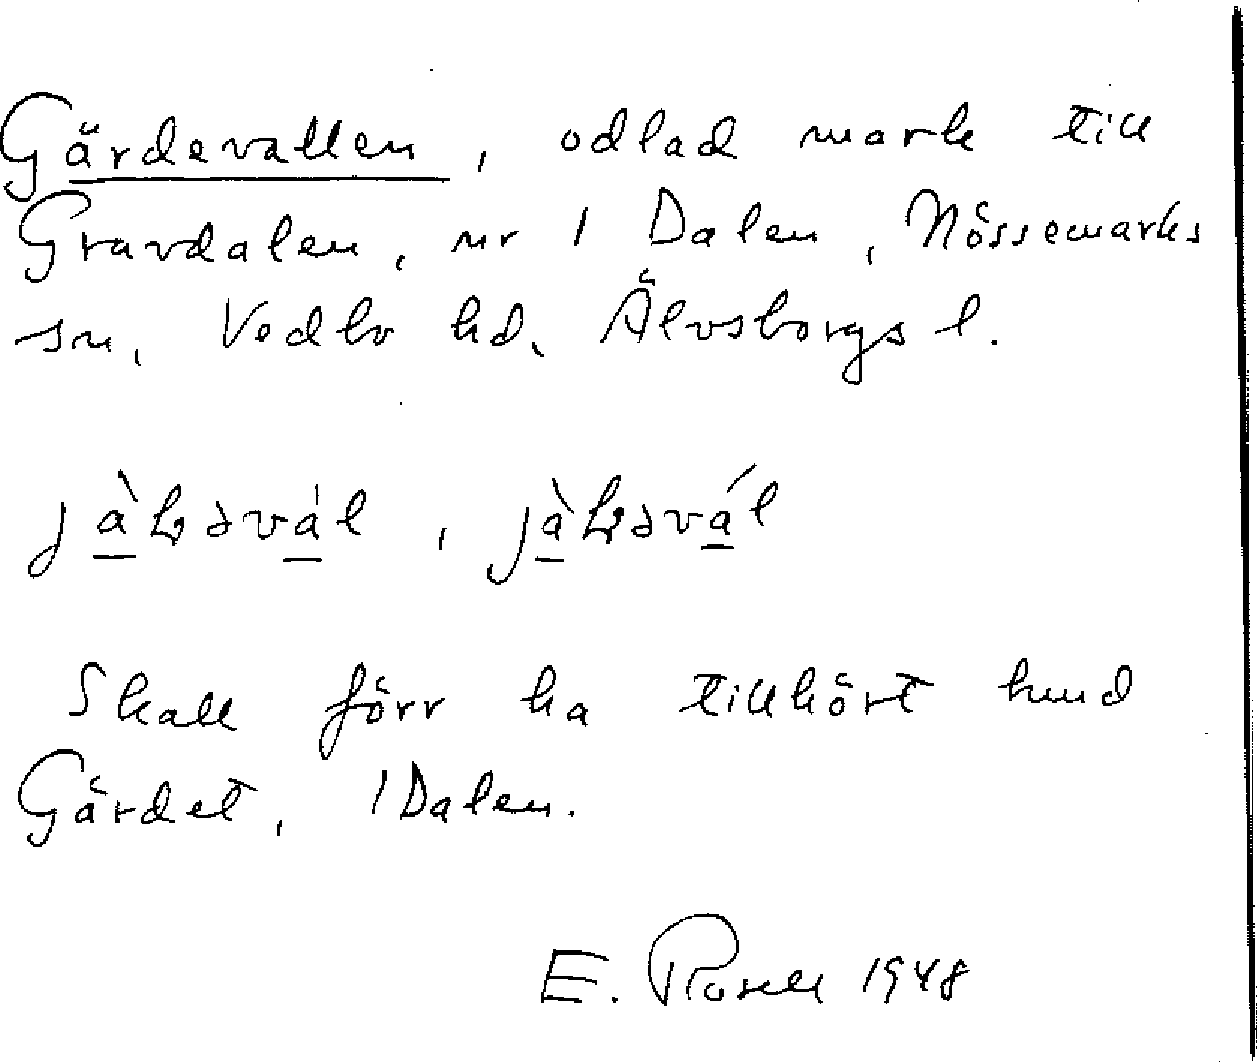 Gärdevallen, odlad mark till
Gravdalen, nr 1 Dalen, Nössemarks
sn, Vedbo hd, Älvsborgs l.
Skall förr ha tillhört hmd
Gärdet, 1 Dalen.
E. Rosell 1948